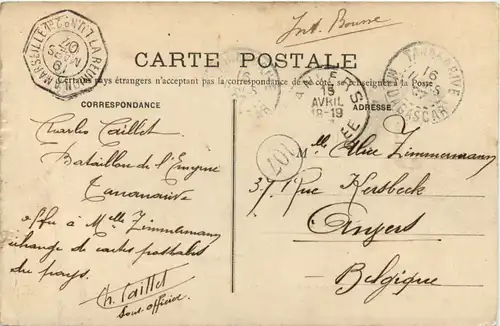 Int. Bourse
LA REUNION A MARSEILLE L.V. N° 2
19 MARS 07
CARTE POSTALE
Certains pays étrangers n'acceptent pas la correspondance de ce côté, se renseigner à la Poste
TANANARIVE
16 MARS
MADAGASCAR
ANVERS
15
AVRIL
18-19
CORRESPONDANCE
ADRESSE
Charles Caillet
Bataillon de l'Emyrne
Tananarive
offre à Melle Zimmermann
échange de cartes postales
du pays.
Ch. Caillet
Sous officier
107
Melle Alice Zimmermann
37 Rue Kersbeck
Anvers
Belgique